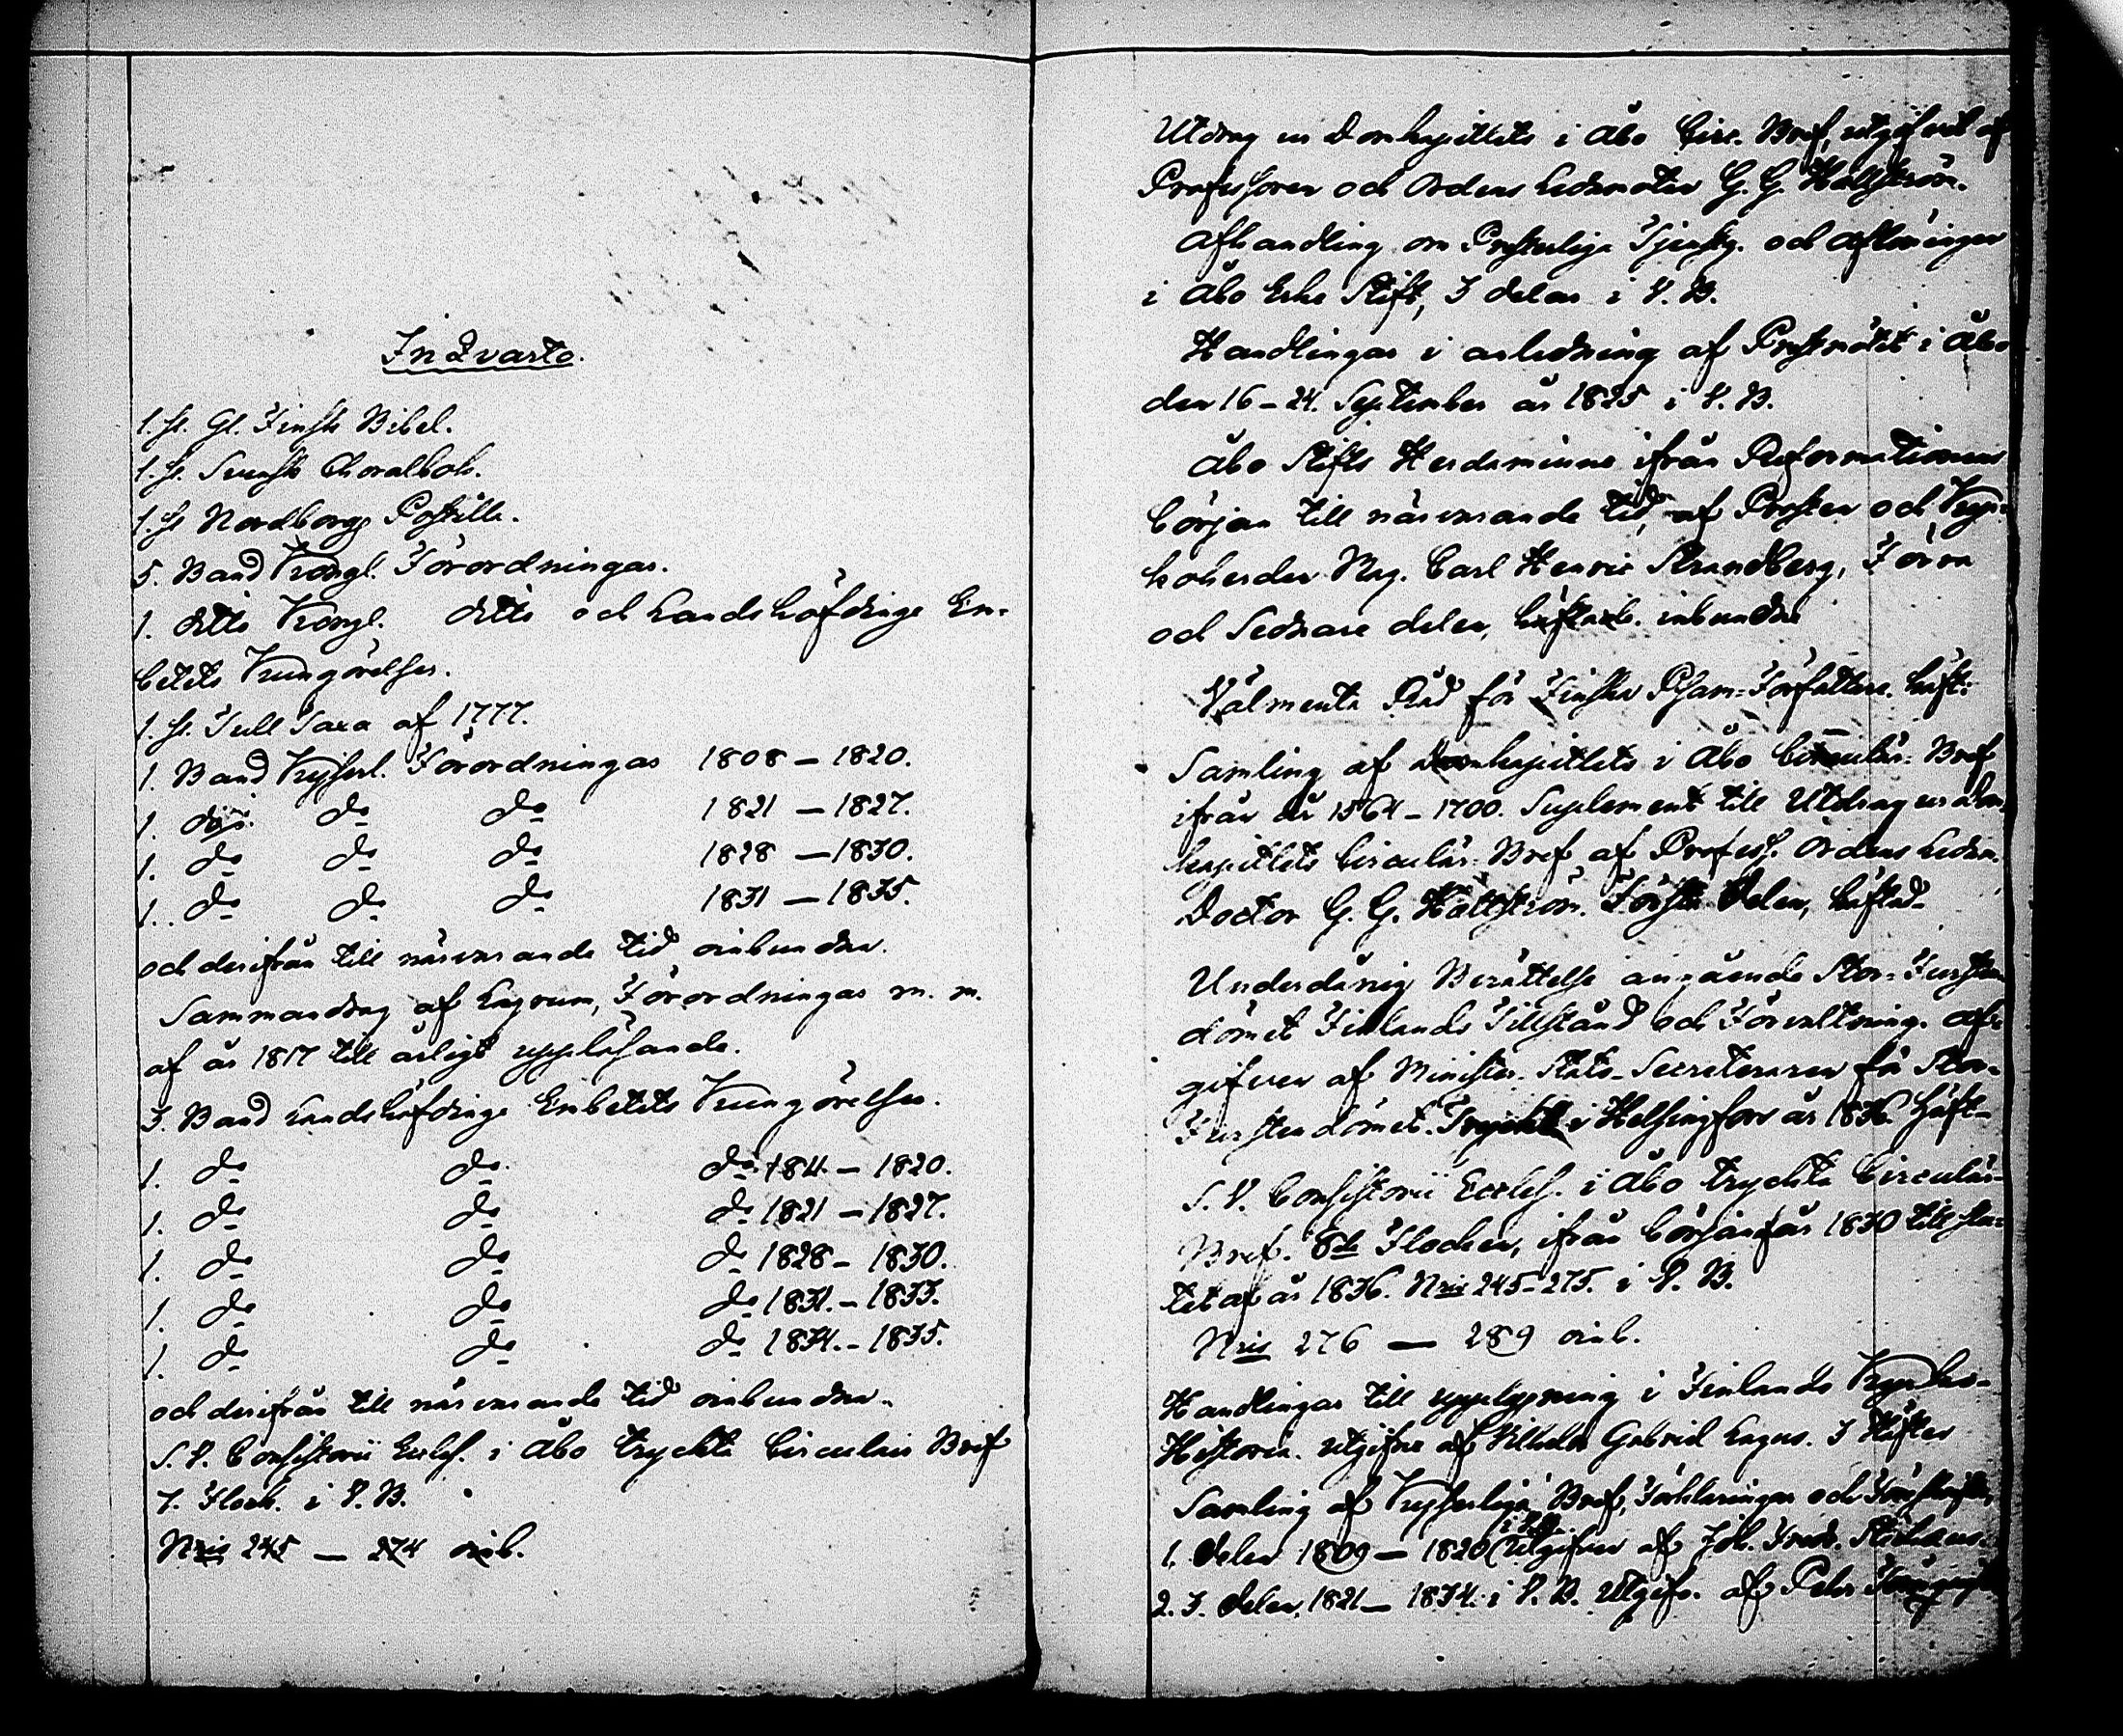 In Qvarto.
1. st. Gl. Finsk Bibel.
1. st. Svensk Choralbok.
1. st Nordborgs Postilla.
5. Band Kongl. Förordningar.
1. ditto Kongl. ditto och Landshöfdinge Em-
betets Kungörelser.
1. st. Tull Taxa af 1777.
1. Band Kejserl. Förordningar 1808 – 1820.
1. do do do 1821 – 1827.
1. do do do 1828 – 1830.
1. do do do 1831 – 1835.
och derifrån till närvarande tid oinbundna.
Sammandrag af Lagrum, Förordningar m. m.
af år 1817 till årligt uppläsande.
3. Band Landshöfdinge Embetets Kungörelser.
1. do do do 1811 – 1820.
1. do do do 1821 – 1827.
1. do do do 1828 – 1830.
1. do do do 1831. – 1833.
1. do do do 1834. – 1835.
och derifrån till närvarande tid oinbundna.
S. V. Consistorii Eccles. i Åbo tryckta Circulair Bref
7. Flock. i P. B.
Nris 245 – 274 oinb.
Utdrag ur Domkapitlets i Åbo Circ. Bref, utgifvet af
Professoren och Ordens Ledamoten G. G. Hällström.
Afhandling om Presterliga Tjenstg. och Aflöningen
i Åbo Erke Stift, 3 delar i P. B.
Handlingar i anledning af Prestmötet i Åbo
den 16 – 24. September år 1825 i P. B.
Åbo Stifts Herdaminne ifrån Reformationens
början till närvarande tid, af Prosten och Kyr-
koherden Mag. Carl Henric Strandberg, Förra
och Sednare delen, häftade. inbundna
Välmenta Råd för Finska Psalm-Författare. häft.
Samling af Domkapitlets i Åbo Circulär-Bref
ifrån år 1564 – 1700. Suplement till Utdrag ur Dom-
kapitlets Circulär-Bref af Profess. Ordens Ledam.
Doctor G. G. Hällström. Första Delen, häftad.
Underdånig Berättelse angående Stor-Fursten-
dömet Finlands Tillstånd och Förvaltning. af-
gifven af Minister-Stats-Secreteraren för Stor-
Furstendömet. Tryckt i Helsingfors år 1836. häft.
S. V. Consistorii Eccles. i Åbo tryckta Circulär-
Bref. 8de Flocken, ifrån början af år 1830 till slu-
tet af år 1836. Nris 245-275. i P. B.
Nris 276 – 289 oinb.
Handlingar till upplysning i Finlands Kyrko-
Historia. utgifne af Wilhelm Gabriel Lagus. 3 Häften
Samling af Kejserliga Bref, Förklaringar och Föreskrifter,
1. delen 1809 – 1820 i P.B. Utgifven af Joh. Fredr.
2. 3. delen. 1821 – 1834. i P. B. Utgifv. af Pehr